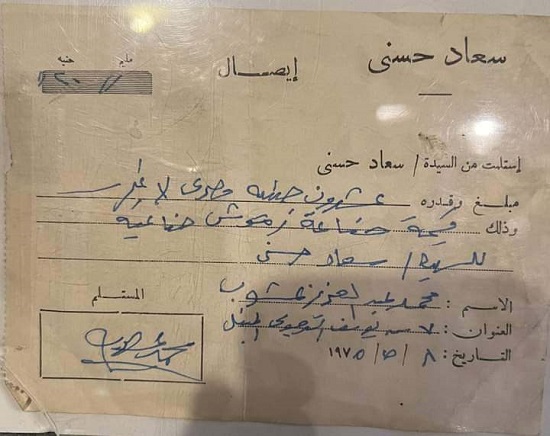 سعاد حسنى
إيصال
مليم جنيه
استلمت من السيدة / سعاد حسنى
مبلغ وقدره عشرون جنيه مصرى لا غير
وذلك قيمة صناعة رموش صناعية
للسيدة / سعاد حسنى
الاسم : محمد عبد العزيز
العنوان : يوسف
التاريخ : ٨ / ٥ / ١٩٧٥
المستلم